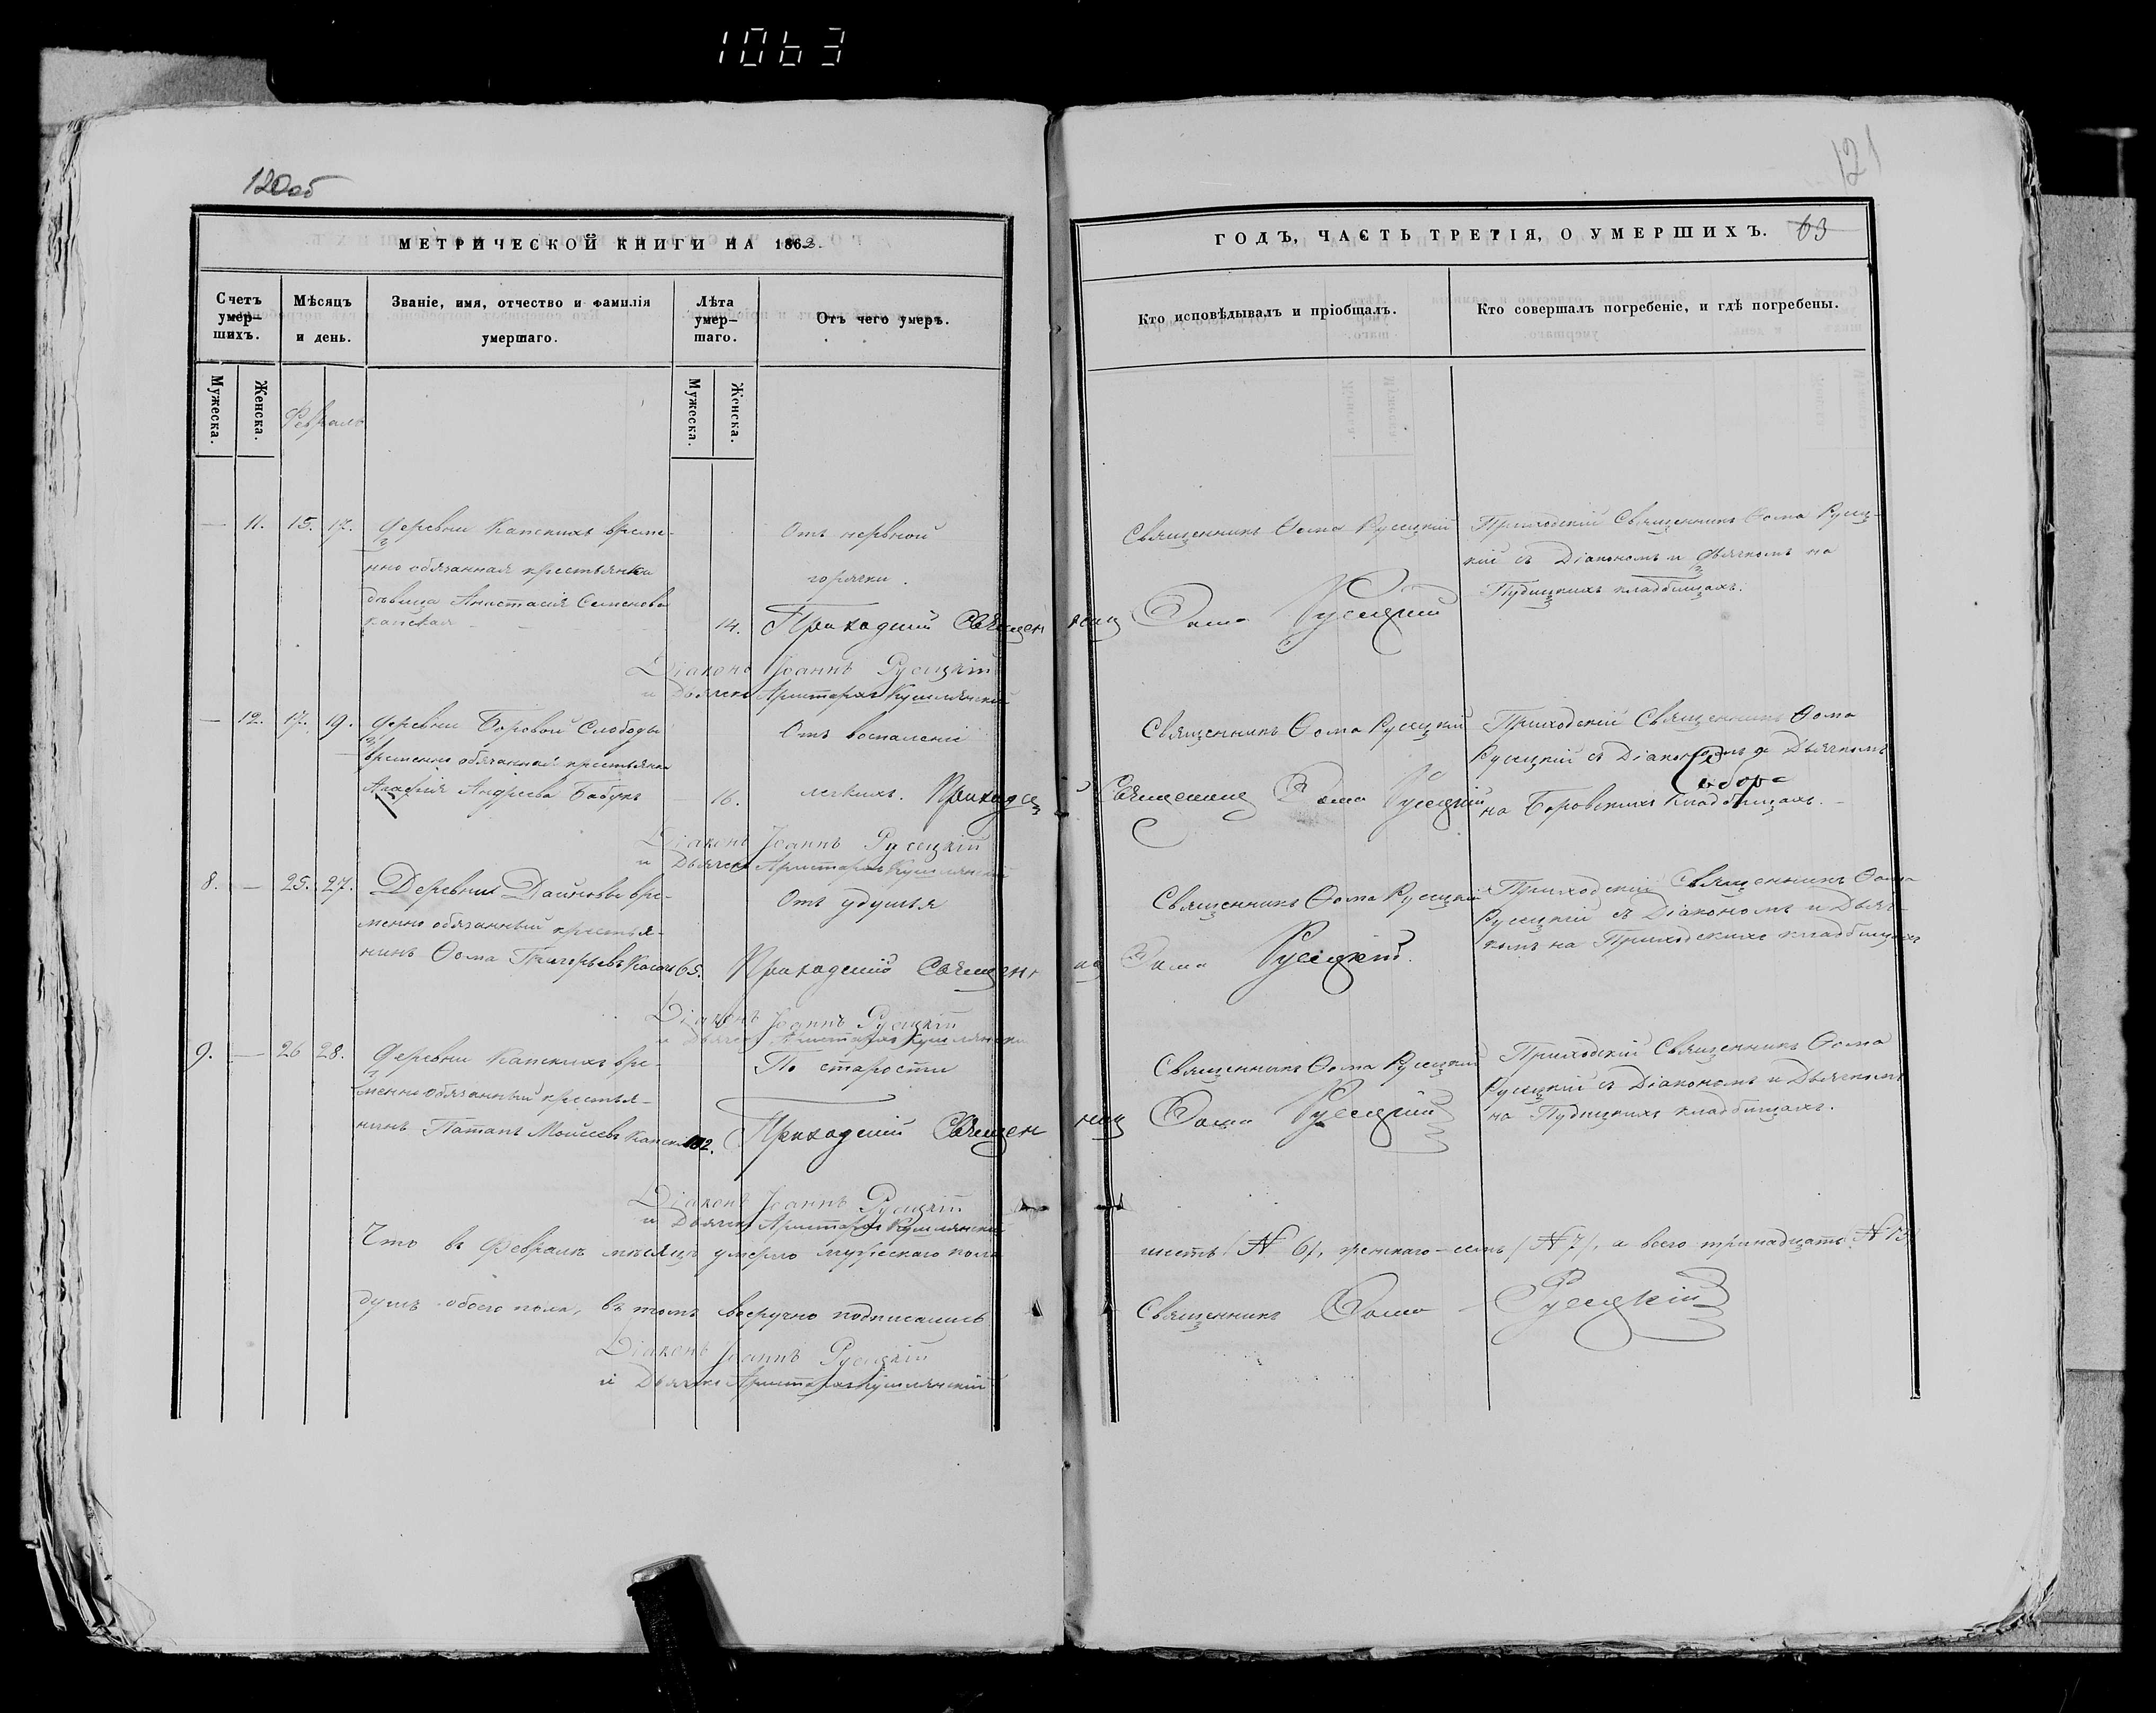 1063
120об
121
МЕТРИЧЕСКОЙ КНИГИ НА 1863
ГОДЪ, ЧАСТЬ ТРЕТІЯ, О УМЕРШИХЪ. 63
Счетъ умер-шихъ.
Мѣсяцъ и день.
Званіе, имя, отчество и фамилія умершаго.
Лѣта умер-шаго.
Отъ чего умеръ.
Кто исповѣдывалъ и пріобщалъ.
Кто совершалъ погребеніе, и гдѣ погребены.
Мужеска.
Женска.
Февраль
Мужеска.
Женска.
— 11. 15. 17.
Деревни Капскихъ време-
нно обязанная крестьянка
дѣвица Анастасія Семенова
Капская
14.
Отъ нервной
горячки.
Священникъ Ѳома Русецкій
Приходскій Священникъ Ѳома Русец-
кій съ Діакономъ и Дьячкомъ на
Пудицкихъ кладбищахъ.
Приходскій Священникъ Ѳома Русецкій
Діаконъ Іоаннъ Русецкій
и Дьячекъ Аристархъ
— 12. 17. 19.
Деревни Боровой Слободы
временно обязанная крестьянка
Андреева Бабукъ
16.
Отъ воспаленія
легкихъ.
Священникъ Ѳома Русецкій
Приходскій Священникъ Ѳома
Русецкій съ Діакономъ и Дьячкомъ
на Боровскихъ кладбищахъ.
Священникъ Ѳома Русецкій
Діаконъ Іоаннъ Русецкій
и Дьячекъ Аристархъ
8. — 25. 27.
Деревни Дайновы вре-
менно обязанный крестья-
нинъ Ѳома Григорьевъ
65.
Отъ удушья
Священникъ Ѳома Русецкій
Приходскій Священникъ Ѳома
Русецкій съ Діакономъ и Дьяч-
комъ на Приходскихъ кладбищахъ
Приходскій Священникъ Ѳома Русецкій.
Діаконъ Іоаннъ Русецкій
и Дьячекъ Аристархъ
9. — 26 28.
Деревни Капскихъ вре-
менно обязанный крестья-
нинъ Патапъ Мойсеевъ
102.
По старости
Священникъ Ѳома Русецкій
Приходскій Священникъ Ѳома
Русецкій съ Діакономъ и Дьячкомъ
на Пудицкихъ кладбищахъ.
Приходскій Священникъ Ѳома Русецкій
Діаконъ Іоаннъ Русецкій
и Дьячекъ Аристархъ
Что въ Февралѣ мѣсяцѣ умерло мужескаго пола шесть (№ 6), женскаго семь (№ 7), а всего тринадцать № 13
душъ обоего пола, въ томъ подписались Священникъ Ѳома Русецкій
Діаконъ Іоаннъ Русецкій
и Дьячекъ Аристархъ